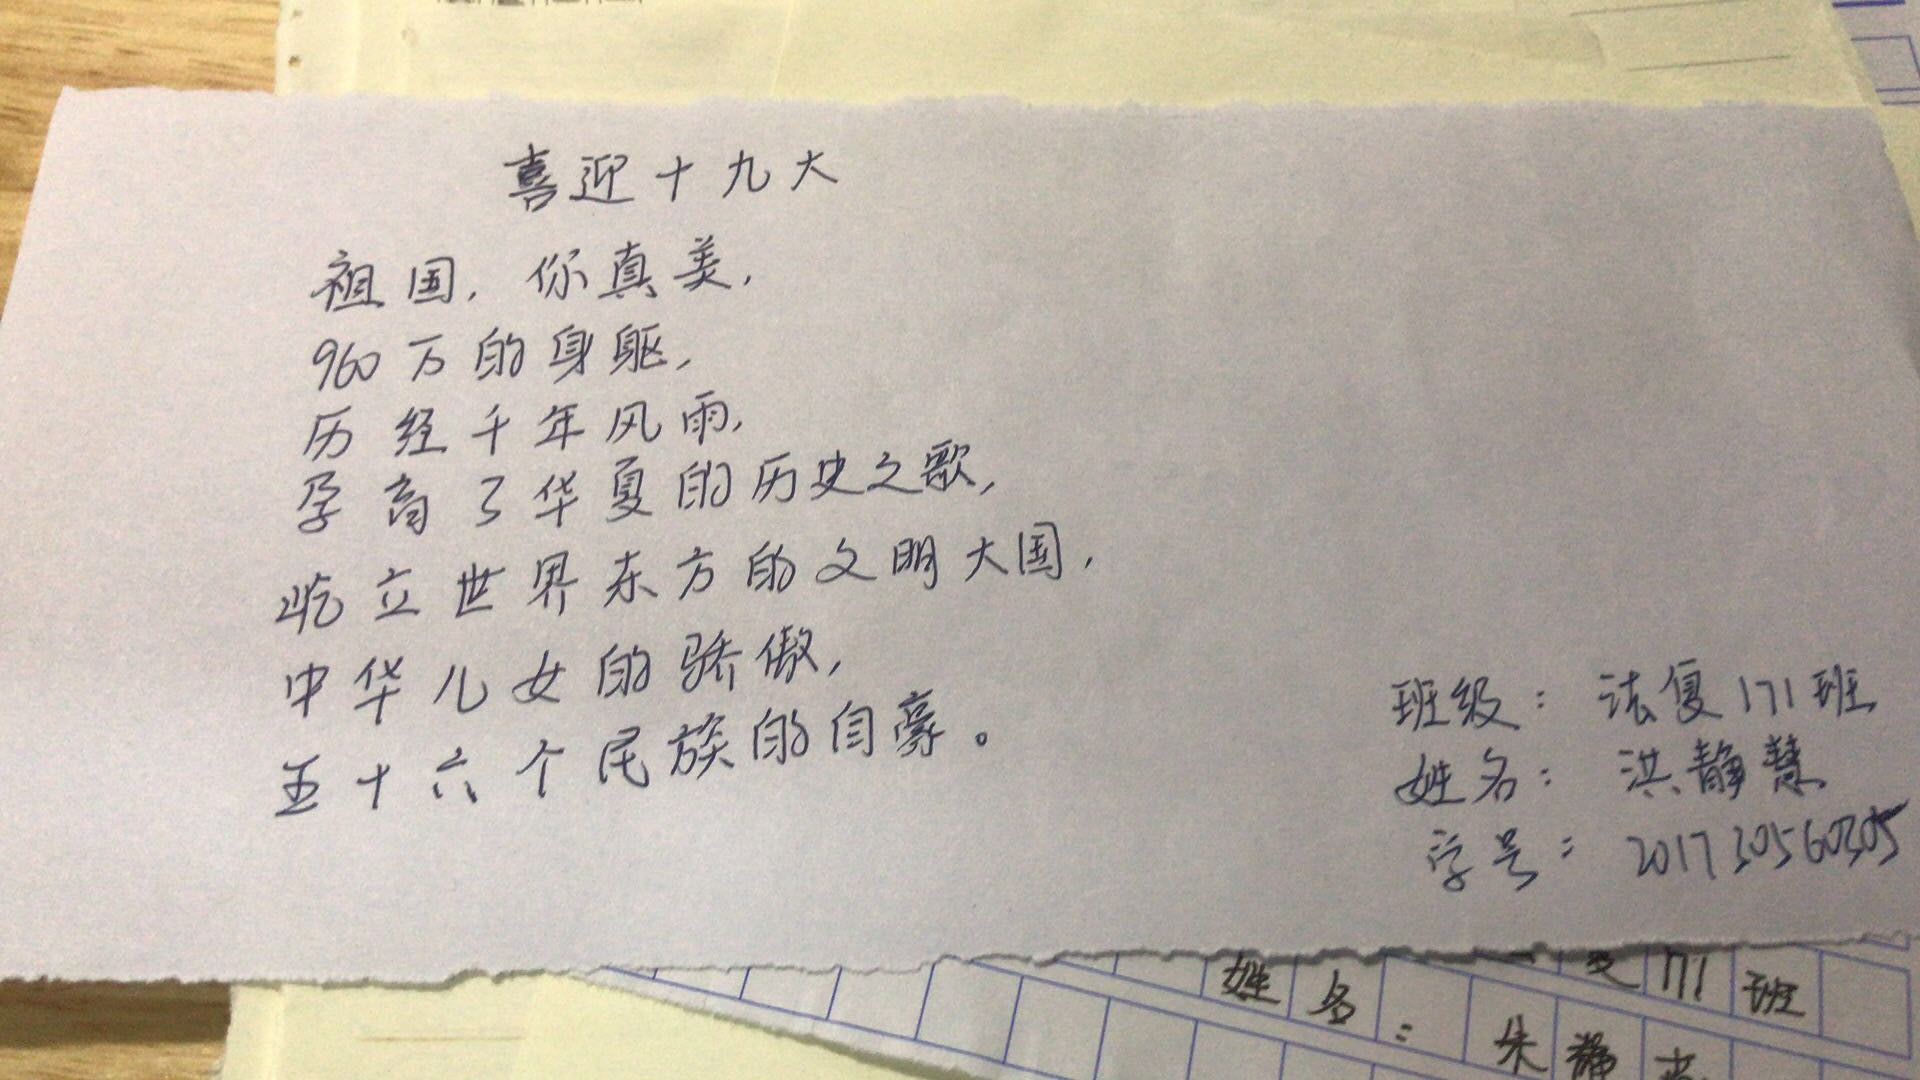 喜迎十九大
祖国，你真美，
960万的身躯，
历经千年风雨，
孕育了华夏的历史之歌，
屹立世界东方的文明大国，
中华儿女的骄傲，
五十六个民族的自豪。
班级：法复171班
姓名：洪静慧
学号：201730560305
171班
姓名：朱静